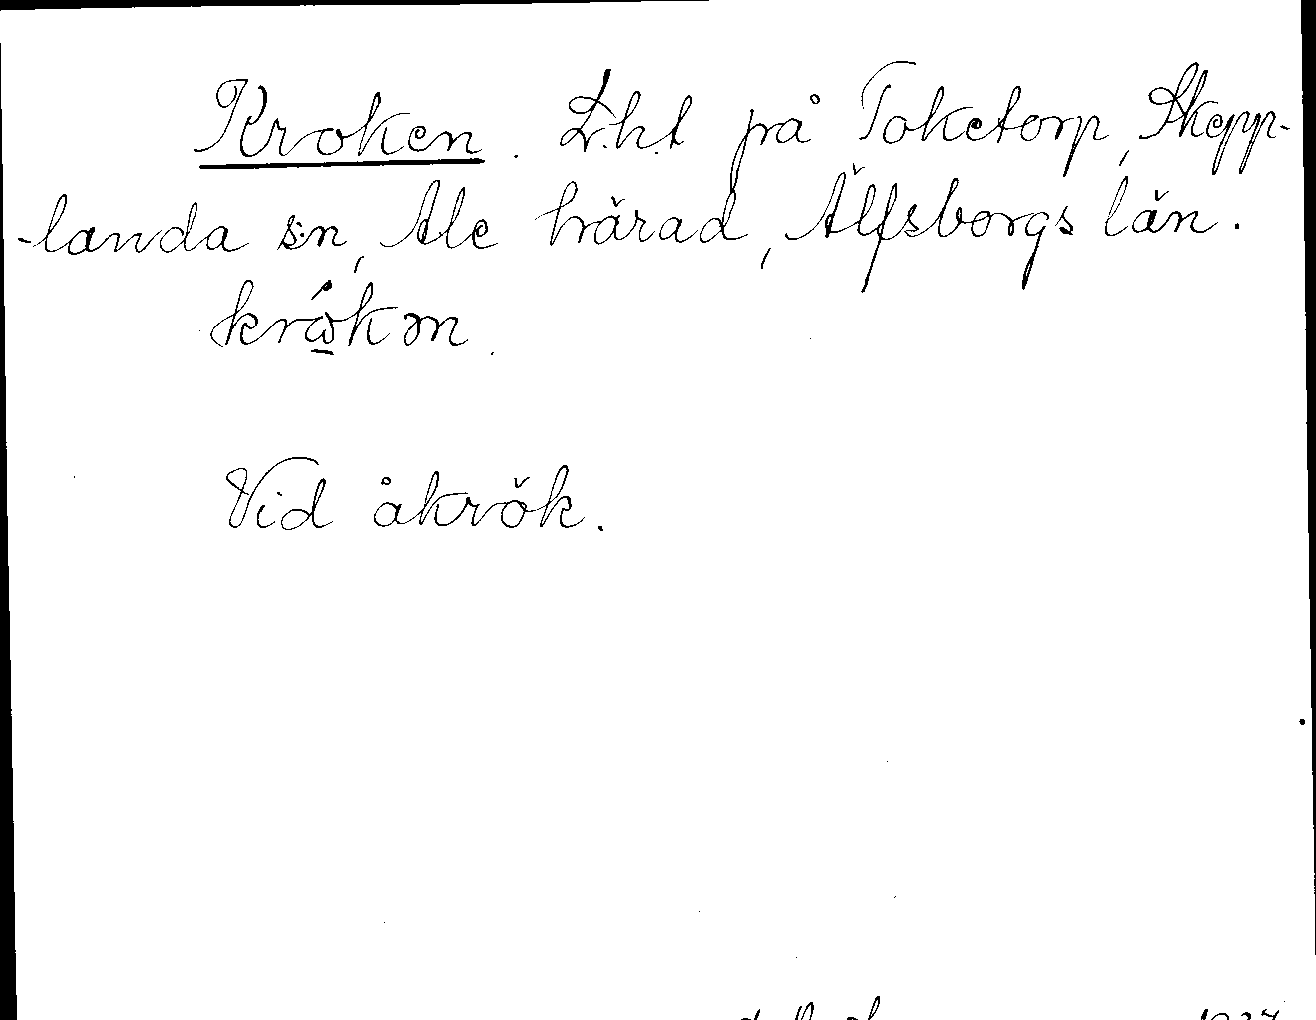 Kroken. Lht på Toketorp, Skepp-
-landa s:n, Ale härad, Älfsborgs län.
krω̂kən.
Vid åkrök.